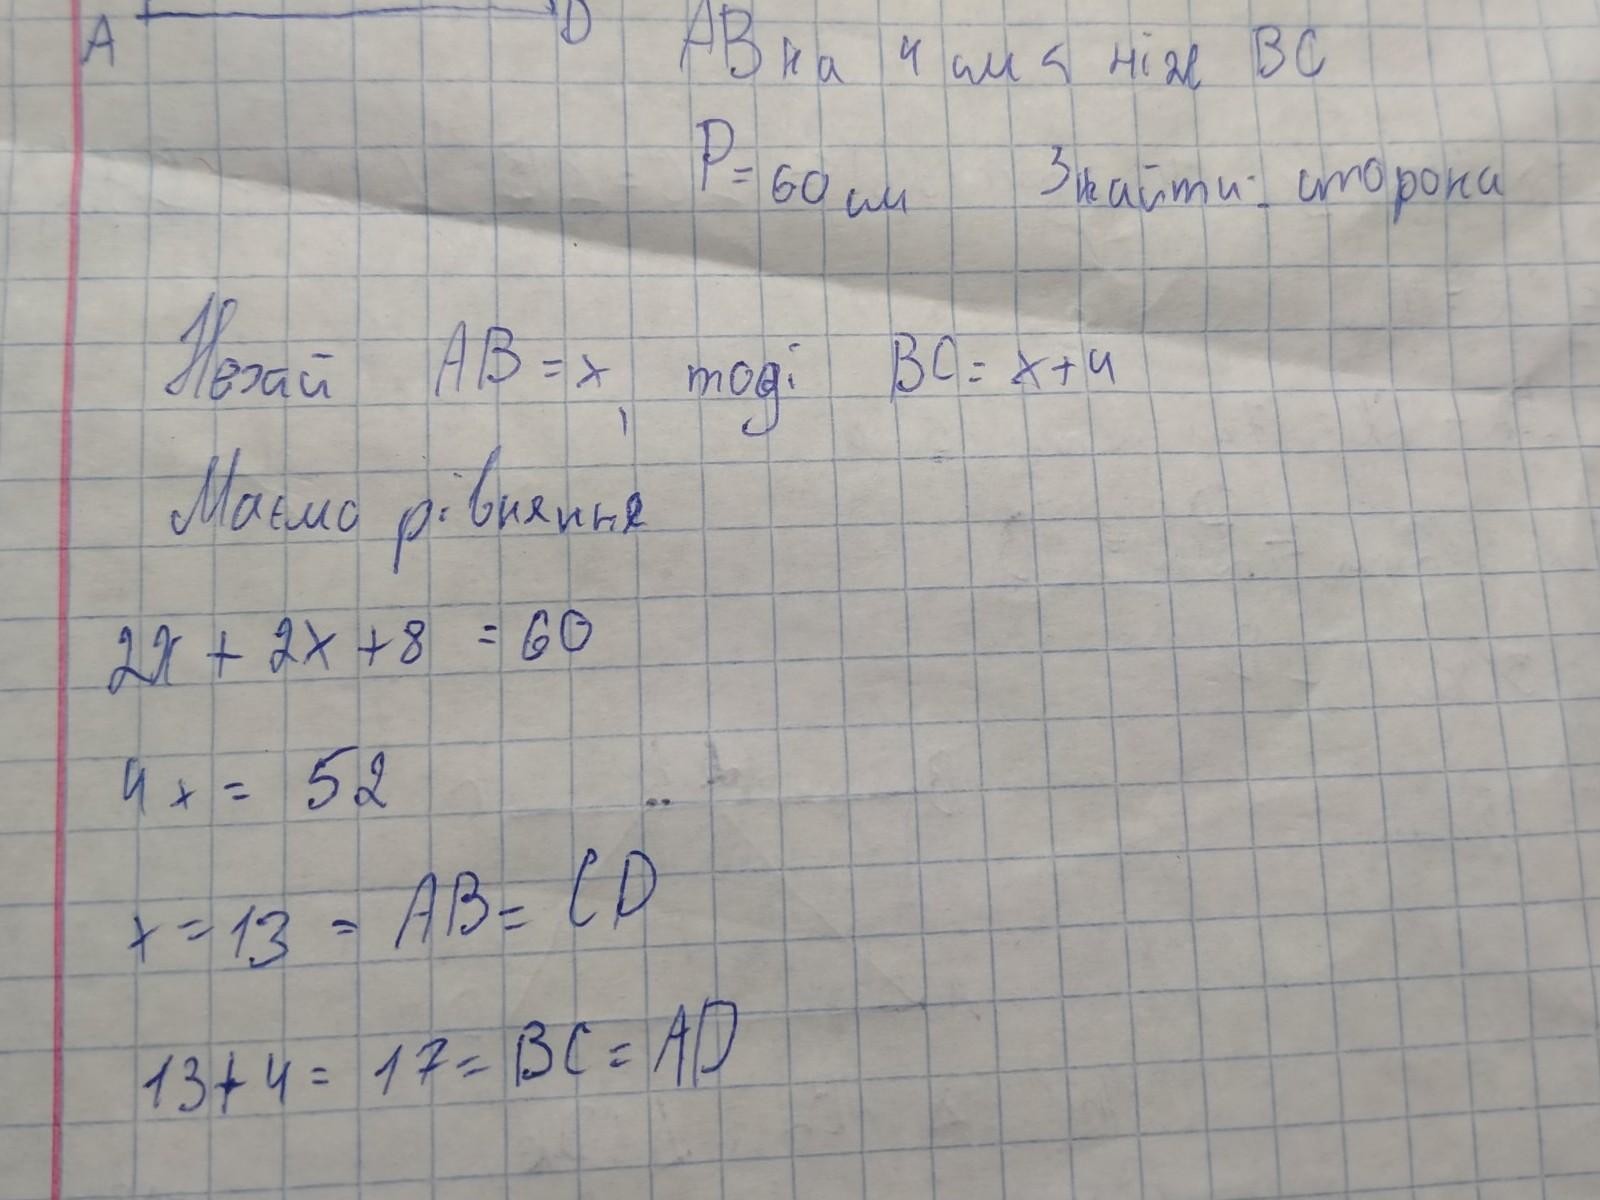 A D AB на 4 см < ніж BC
P = 60 см Знайти: сторони
Нехай AB = x, тоді BC = x+4
Маємо рівняння
2x + 2x + 8 = 60
4x = 52
x = 13 = AB = CD
13+4 = 17 = BC = AD